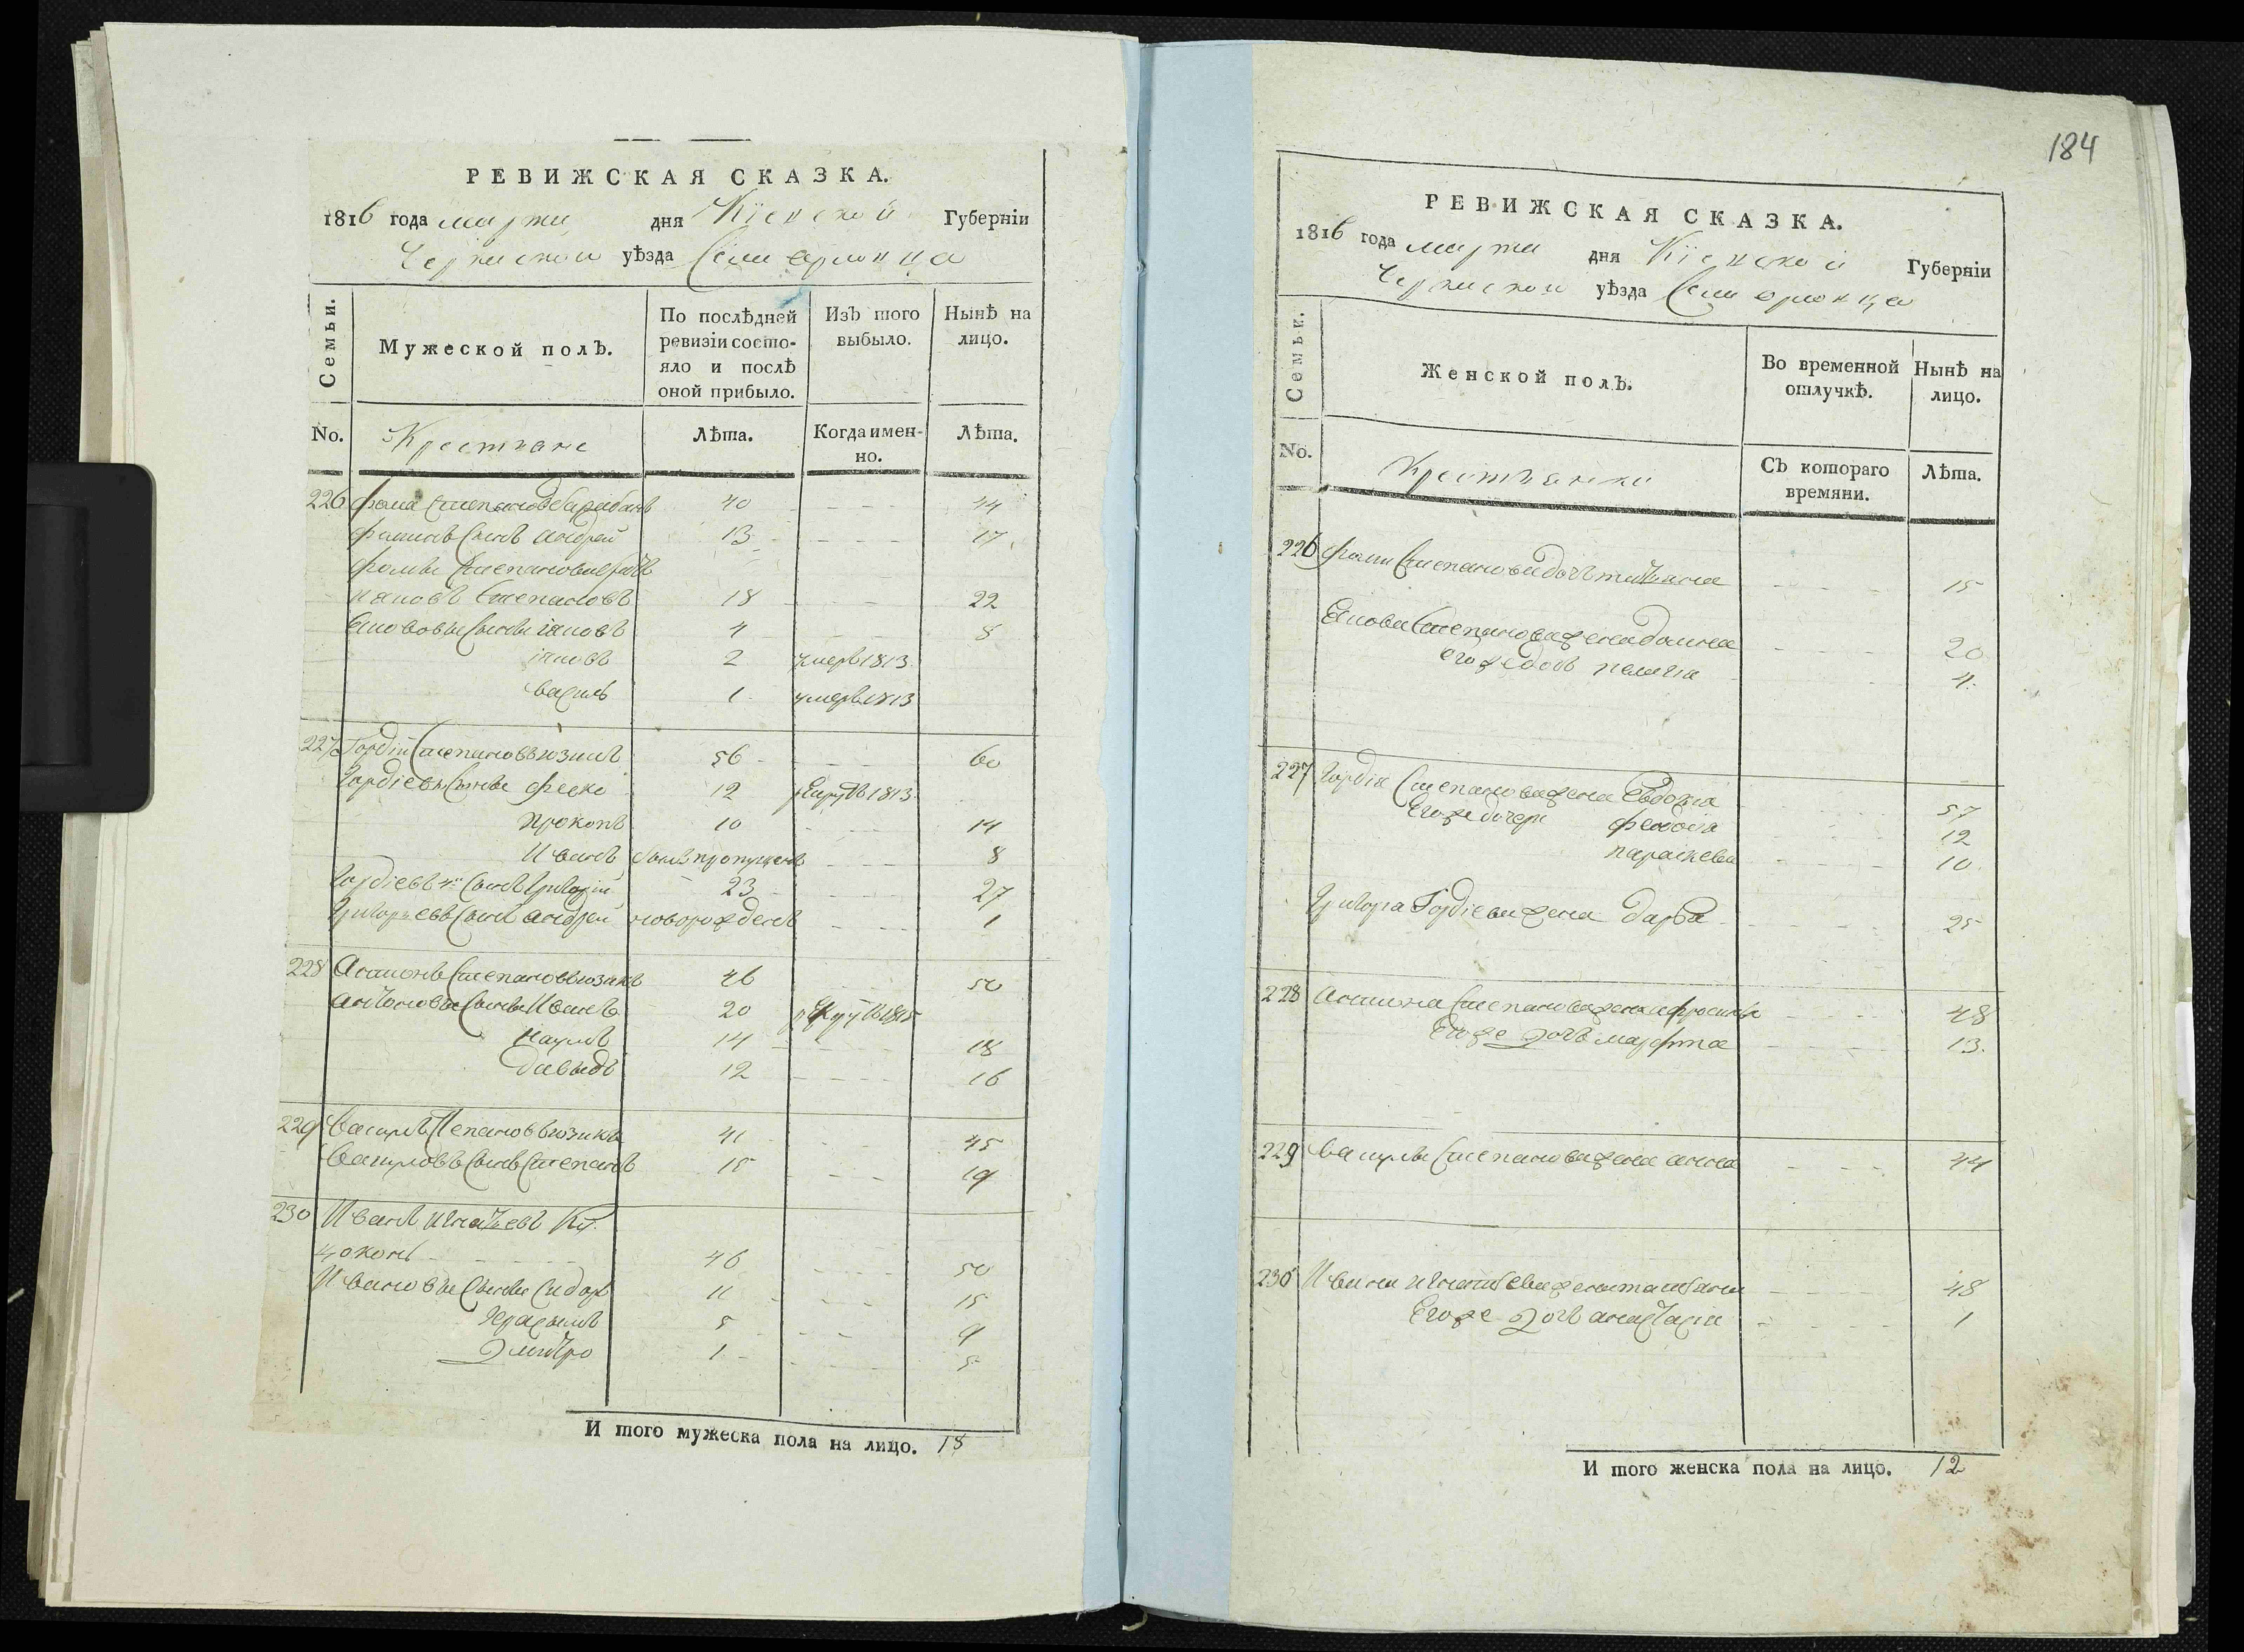 РЕВИЖСКАЯ СКАЗКА.
1816 года марта дня Кіевской Губерніи
Черкаской уѣзда Села
Семьи.
Мужеской полъ.
По послѣдней ревизіи состояло и послѣ оной прибыло.
Изъ того выбыло.
Нынѣ на лицо.
No.
Крестьяне
Лѣта.
Когда именно.
Лѣта.
226 Фома Степановъ Барабашъ 40 44
Фоминъ Сынъ Андрей 13 17
Фомы Степанова братъ
Яковъ Степановъ 18 22
Яковъ 4 8
яковъ 2 умеръ 1813
василь 1 умеръ 1813
227 Гордій Степановъ вюзикъ 56 60
Гордіевы Сыны Феско 12 рекрутъ 1813
Прокопъ 10 14
Иванъ былъ пропущенъ 8
Гордіевъ Сынъ Григорій 23 27
Григорьевъ Сынъ Андрей новорожденъ 1
228 Антонъ Степановъ вюзикъ 46 50
Антоновы Сыны Иванъ 20 рекрутъ 1815
Наумъ 14 18
Давыдъ 12 16
229 Василь Степановъ вюзикъ 41 45
Сынъ Степанъ 15 19
230 Иванъ Игнатьевъ Ку-
цоконь 46 50
Ивановы Сыны Сидоръ 11 15
Герасимъ 5 9
Дмитро 1 5
И того мужеска пола на лицо. 18
184
РЕВИЖСКАЯ СКАЗКА.
1816 года марта дня Кіевской Губерніи
Черкаской уѣзда Села
Семьи.
Женской полъ.
Во временной отлучкѣ.
Нынѣ на лицо.
No.
Крестьянки
Съ котораго времяни.
Лѣта.
226 Фомы Степанова дочь татьяна 15
Якова Степанова жена домна 20
Его же дочь пелагія 4
227 Гордія Степанова жена Евдокія 57
Его же дочери Феодосія 12
параскева 10
Григорія Гордіева жена дарья 25
228 Антона Степанова жена ефросинія 48
Его же дочь марфта 13
229 Василя Степанова жена анна 44
230 Ивана игнатьева жена татьяна 48
Его же дочь анастасія 1
И того женска пола на лицо. 12